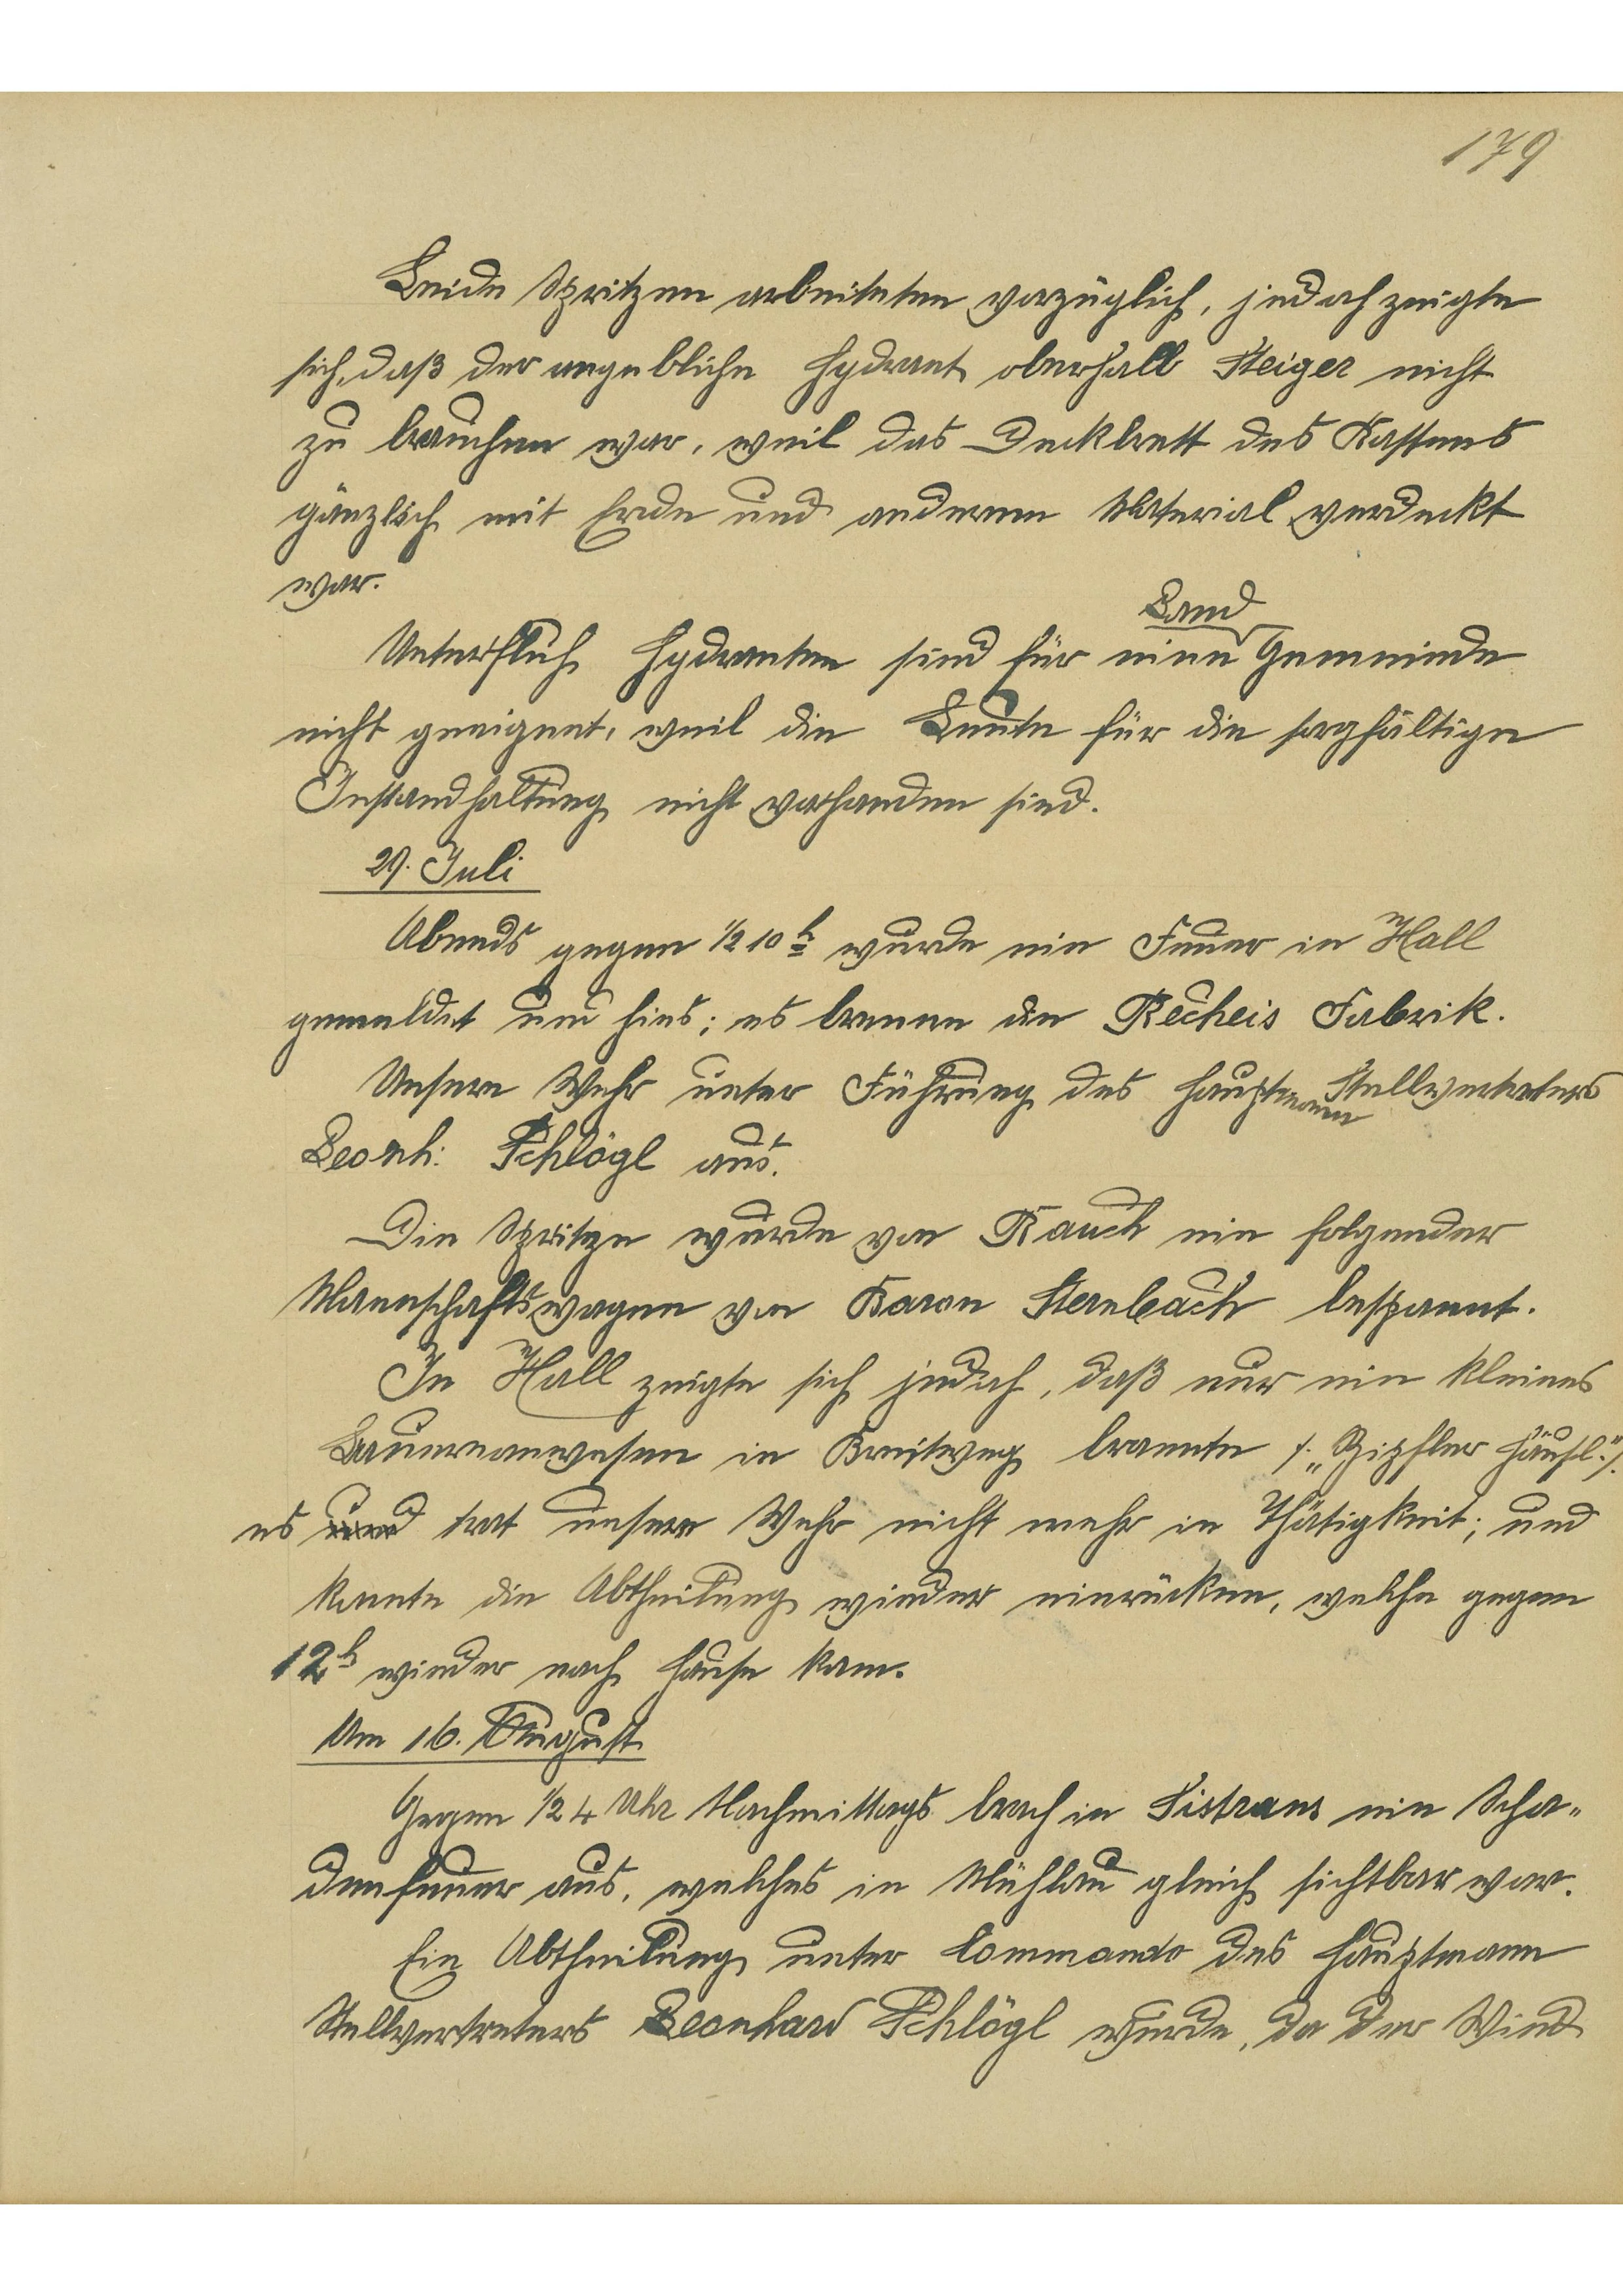 179
Beide Spritzen arbeiteten vorzüglich, jedoch zeigte
sich, daß der angebliche Hydrant oberhalb Steiger nicht
zu brauchen war, weil das Deckbrett des Kastens
gänzlich mit Erde und anderem Material verdeckt
war.
Land
Unterfluh Hydranten sind für eine Gemeinde
nicht geeignet, weil die Leute für die sorgfältige
Instandhaltung nicht vorhanden sind.
29. Juli
Abends gegen ½ 10 h wurde ein Feuer in Hall
gemeldet und hies; es brenne die Recheis Fabrik.
Unsere Wehr unter Führung des Hauptmann Stellvertreters
Leonh: Schlögl aus.
Die Spritze wurde von Rauch ein folgender
Mannschaftswagen von Baron Sternbach bespannt.
In Hall zeigte sich jedoch, daß nur ein kleines
Bauernanwesen in Breitweg brannte /: „Spipfler Häusl" :/.
es und trat unsere Wehr nicht mehr in Thätigkeit; und
konnte die Abtheilung wieder einrücken, welche gegen
12 h wieder nach Hause kam.
Am 16. August
Gegen ½ 4 Uhr Nachmittags brach in Sistrans ein Scha-
denfeuer aus, welches in Mühlau gleich sichtbar war.
Ein Abtheilung unter Commando des Hauptmann
Stellvertreters Leonhard Schlögl wurde, da der Wind